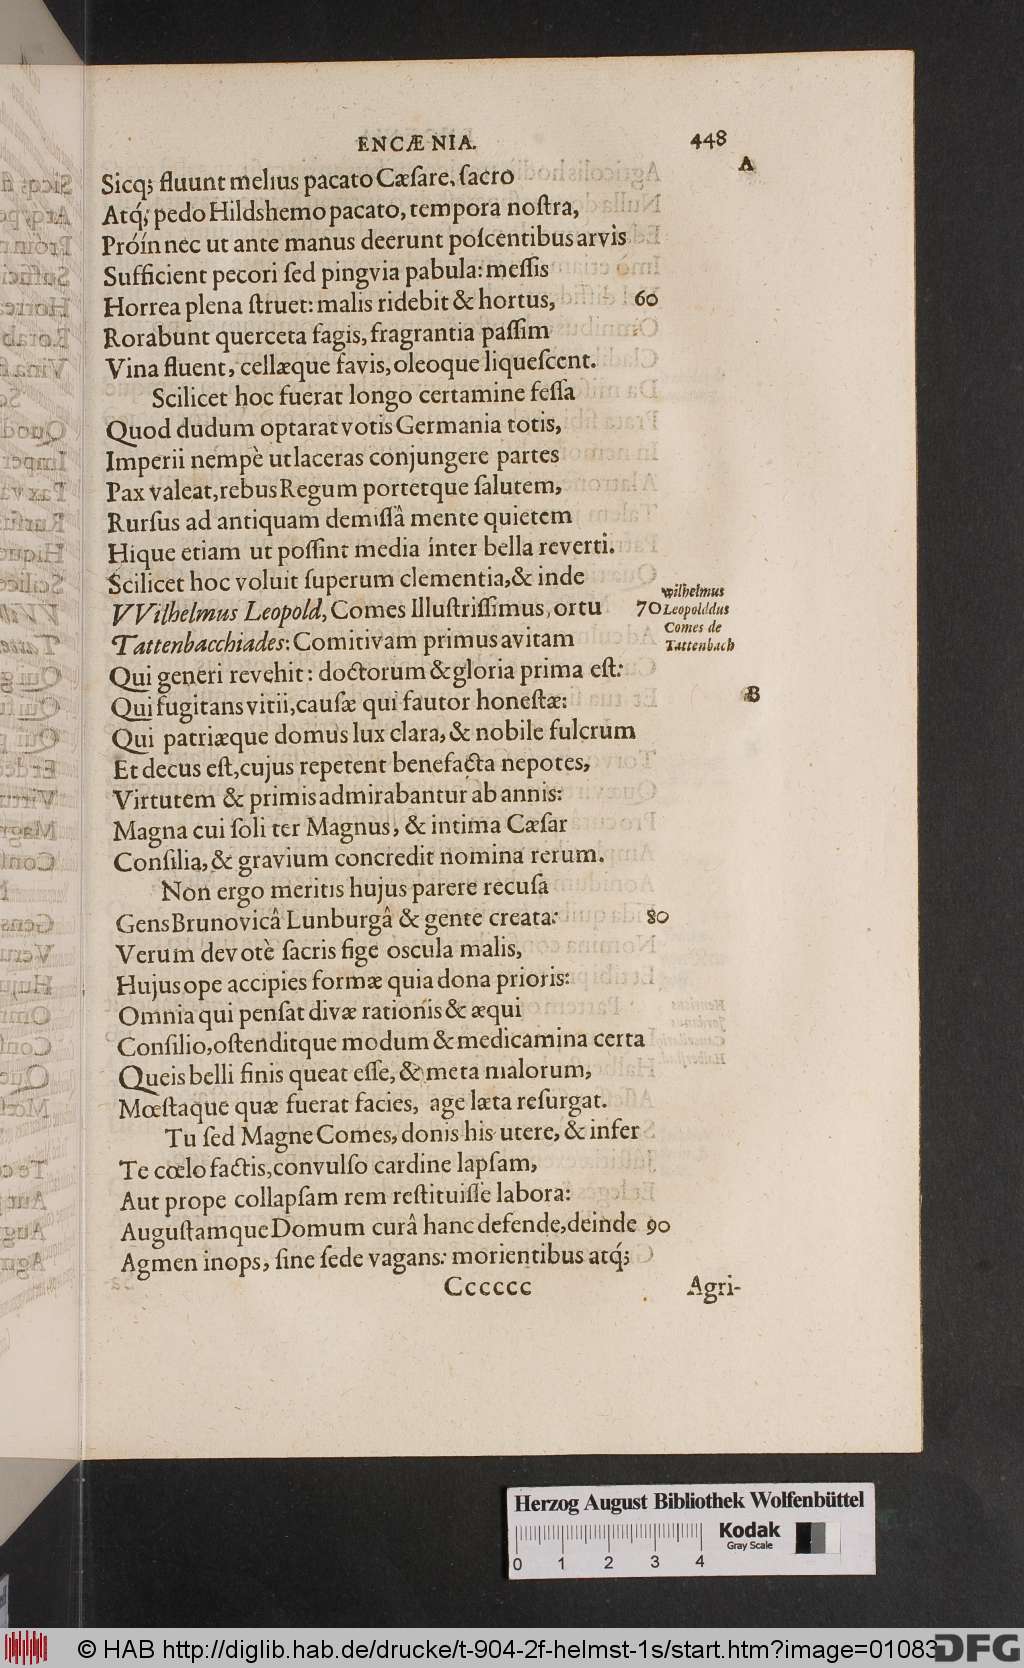 ENCÆNIA. 448
A
Sicq; fluunt melius pacato Cæſare, ſacro
Atq́; pedo Hildshemo pacato, tempora noſtra,
Próín nec ut ante manus deerunt poſcentibus arvis
Sufficient pecori ſed pingvia pabula: meſſis
Horrea plena ſtruet: malis ridebit & hortus, 60
Rorabunt querceta fagis, fragrantia paſſim
Vina fluent, cellæque favis, oleoque liqueſcent.
Scilicet hoc fuerat longo certamine feſſa
Quod dudum optarat votis Germania totis,
Imperii nempè ut laceras conjungere partes
Pax valeat, rebus Regum portetque ſalutem,
Rurſus ad antiquam demiſſâ mente quietem
Hique etiam ut poſſint media ínter bella reverti.
Scilicet hoc voluit ſuperum clementia, & inde
VVilhelmus Leopold, Comes Illuſtriſſimus, ortu 70
wilhelmus
Leopolddus
Comes de
Tattenbach
Tattenbacchiades: Comitivam primus avitam
Qui generi revehit: doctorum & gloria prima eſt:
Qui fugitans vitii, cauſæ qui fautor honeſtæ: B
Qui patriæque domus lux clara, & nobile fulcrum
Et decus eſt, cujus repetent benefacta nepotes,
Virtutem & primis admirabantur ab annis:
Magna cui ſoli ter Magnus, & intima Cæſar
Conſilia, & gravium concredit nomina rerum.
Non ergo meritis hujus parere recuſa
Gens Brunovicâ Lunburgâ & gente creata: 80
Verum devotè ſacris fige oscula malis,
Hujus ope accipies formæ quia dona prioris:
Omnia qui penſat divæ rationis & æqui
Conſilio, oſtenditque modum & medicamina certa
Queis belli finis queat eſſe, & meta malorum,
Mœſtaque quæ fuerat facies, age læta reſurgat.
Tu ſed Magne Comes, donis his utere, & infer
Te cœlo factis, convulſo cardine lapſam,
Aut prope collapſam rem reſtituiſſe labora:
Auguſtamque Domum curâ hanc defende, deinde 90
Agmen inops, ſine ſede vagans: morientibus atq́;
Cccccc Agri-
Herzog August Bibliothek Wolfenbüttel
Kodak
Gray Scale
0 1 2 3 4
© HAB http://diglib.hab.de/drucke/t-904-2f-helmst-1s/start.htm?image=01083
DFG